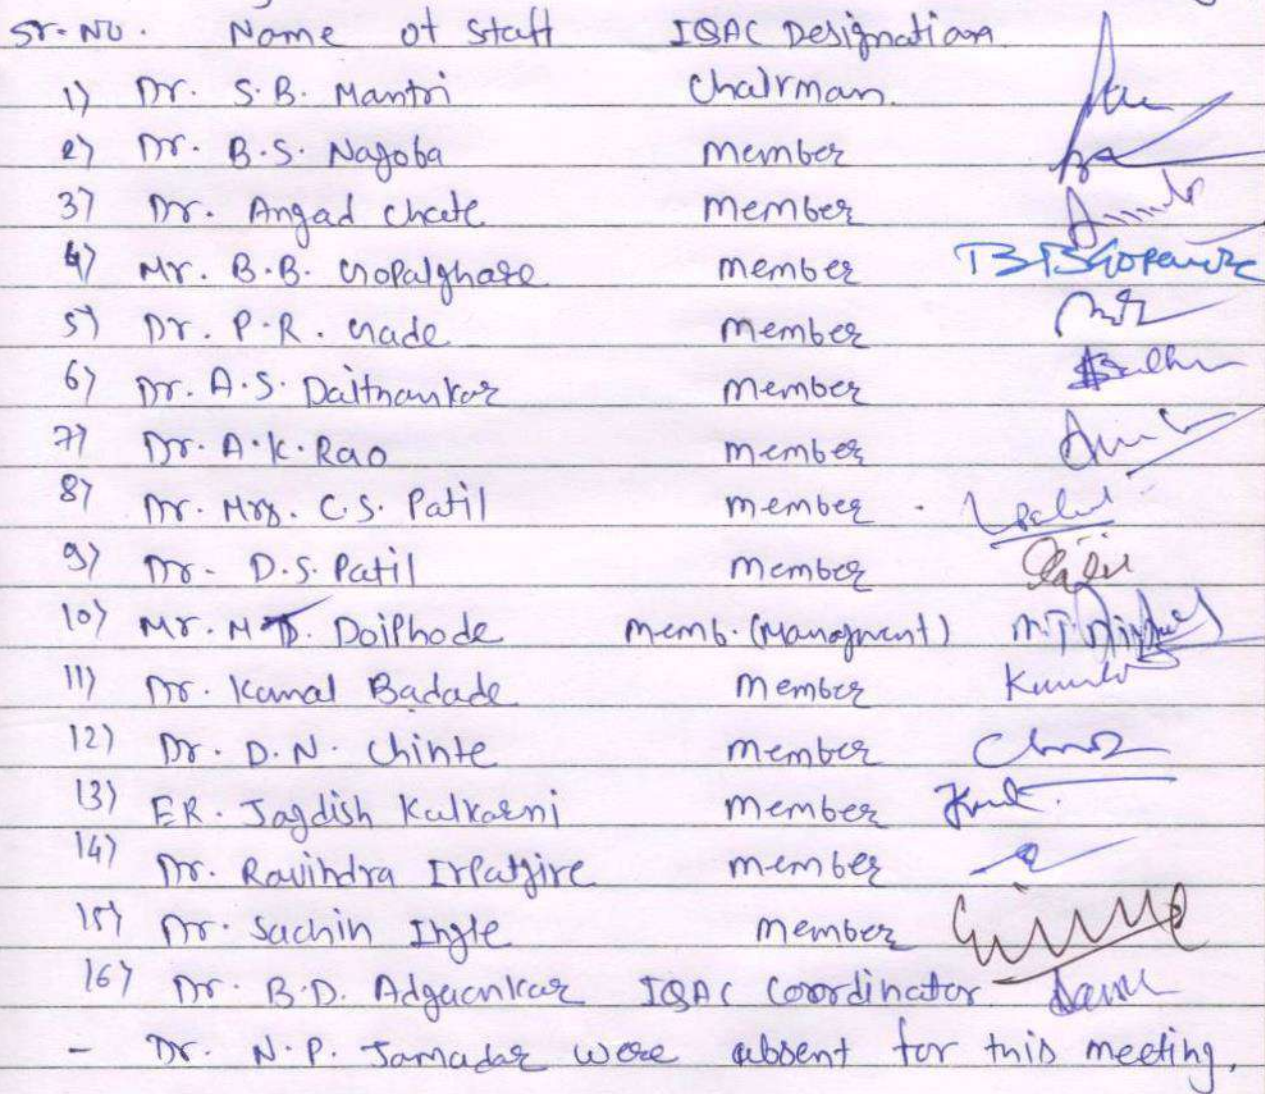 Sr. No. Name of Staff IQAC Designation
1) Dr. S.B. Mantri Chairman.
2) Dr. B.S. Nagoba Member
3) Dr. Angad Chate Member
4) Mr. B.B. Gopalghare Member
5) Dr. P.R. Gade Member
6) Dr. A.S. Daithankar Member
7) Dr. A.K. Rao Member
8) Dr. Mrs. C.S. Patil Member
9) Dr. D.S. Patil Member
10) Mr. M.T. Doiphode Memb. (Managment)
11) Dr. Kamal Badade Member
12) Dr. D.N. Chinte Member
13) ER. Jagdish Kulkarni Member
14) Dr. Ravindra Irpatgire Member
15) Dr. Sachin Ingle Member
16) Dr. B.D. Adgaonkar IQAC Coordinator
- Dr. N.P. Jamadar were absent for this meeting.